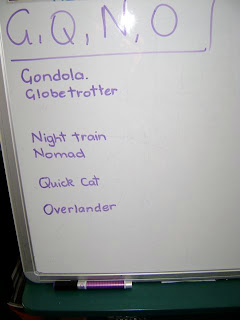 G, Q, N, O
Gondola.
Globetrotter
Night train
Nomad
Quick Cat
Overlander